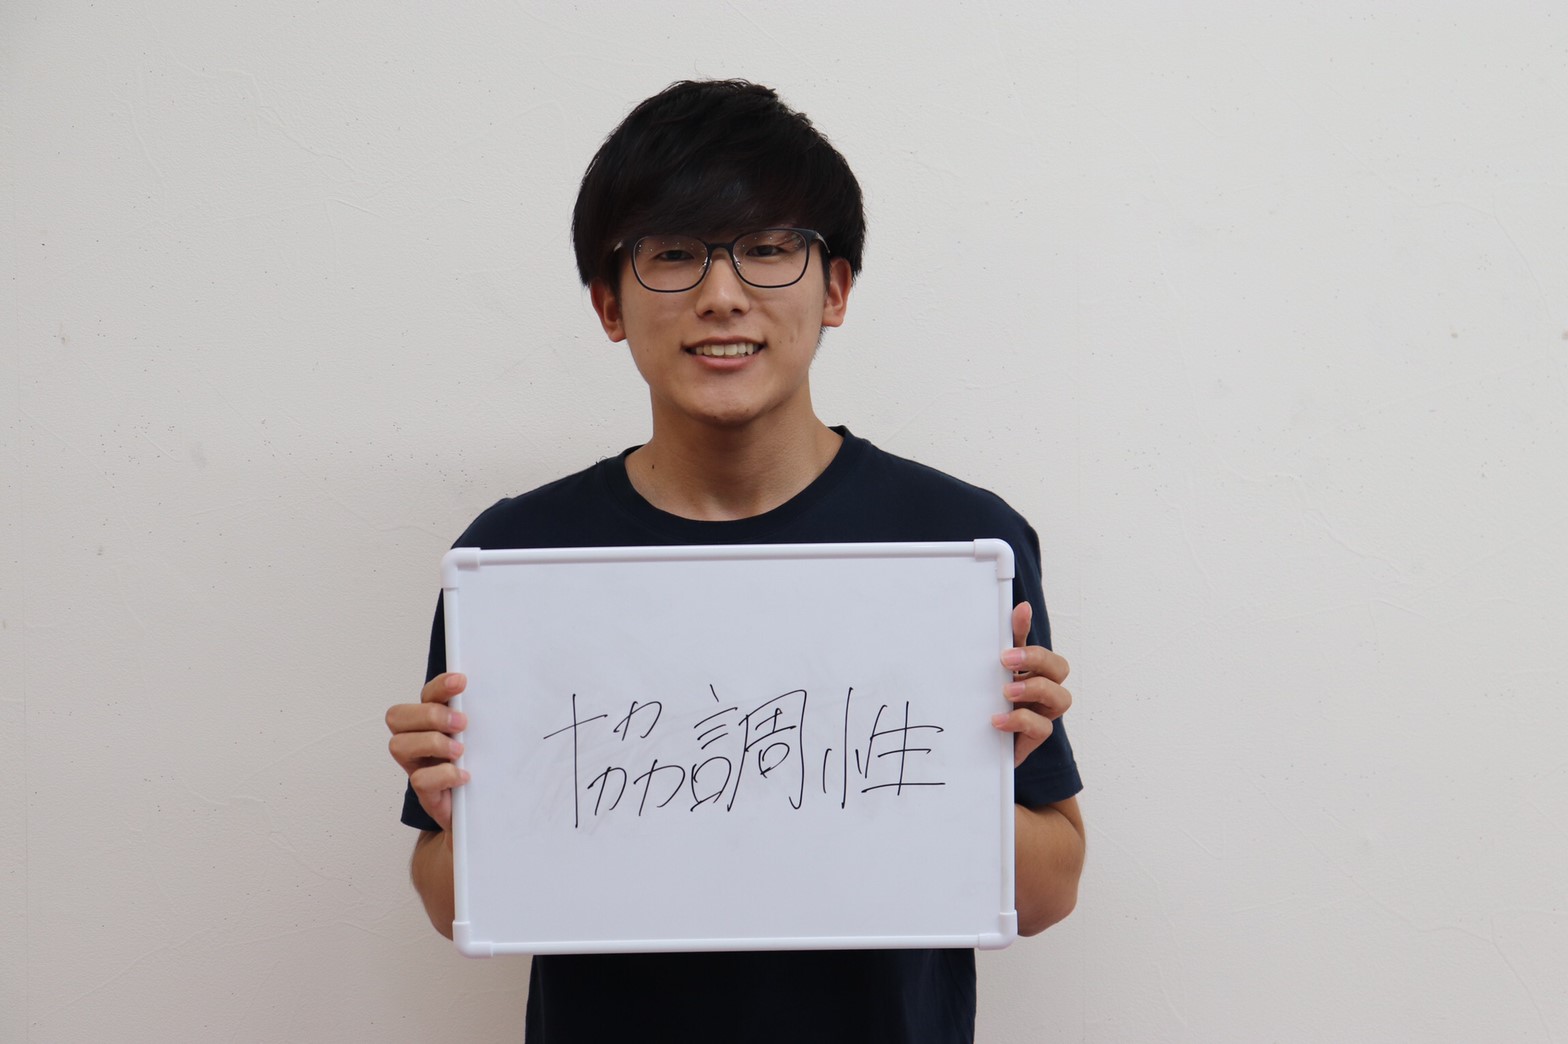 協調性